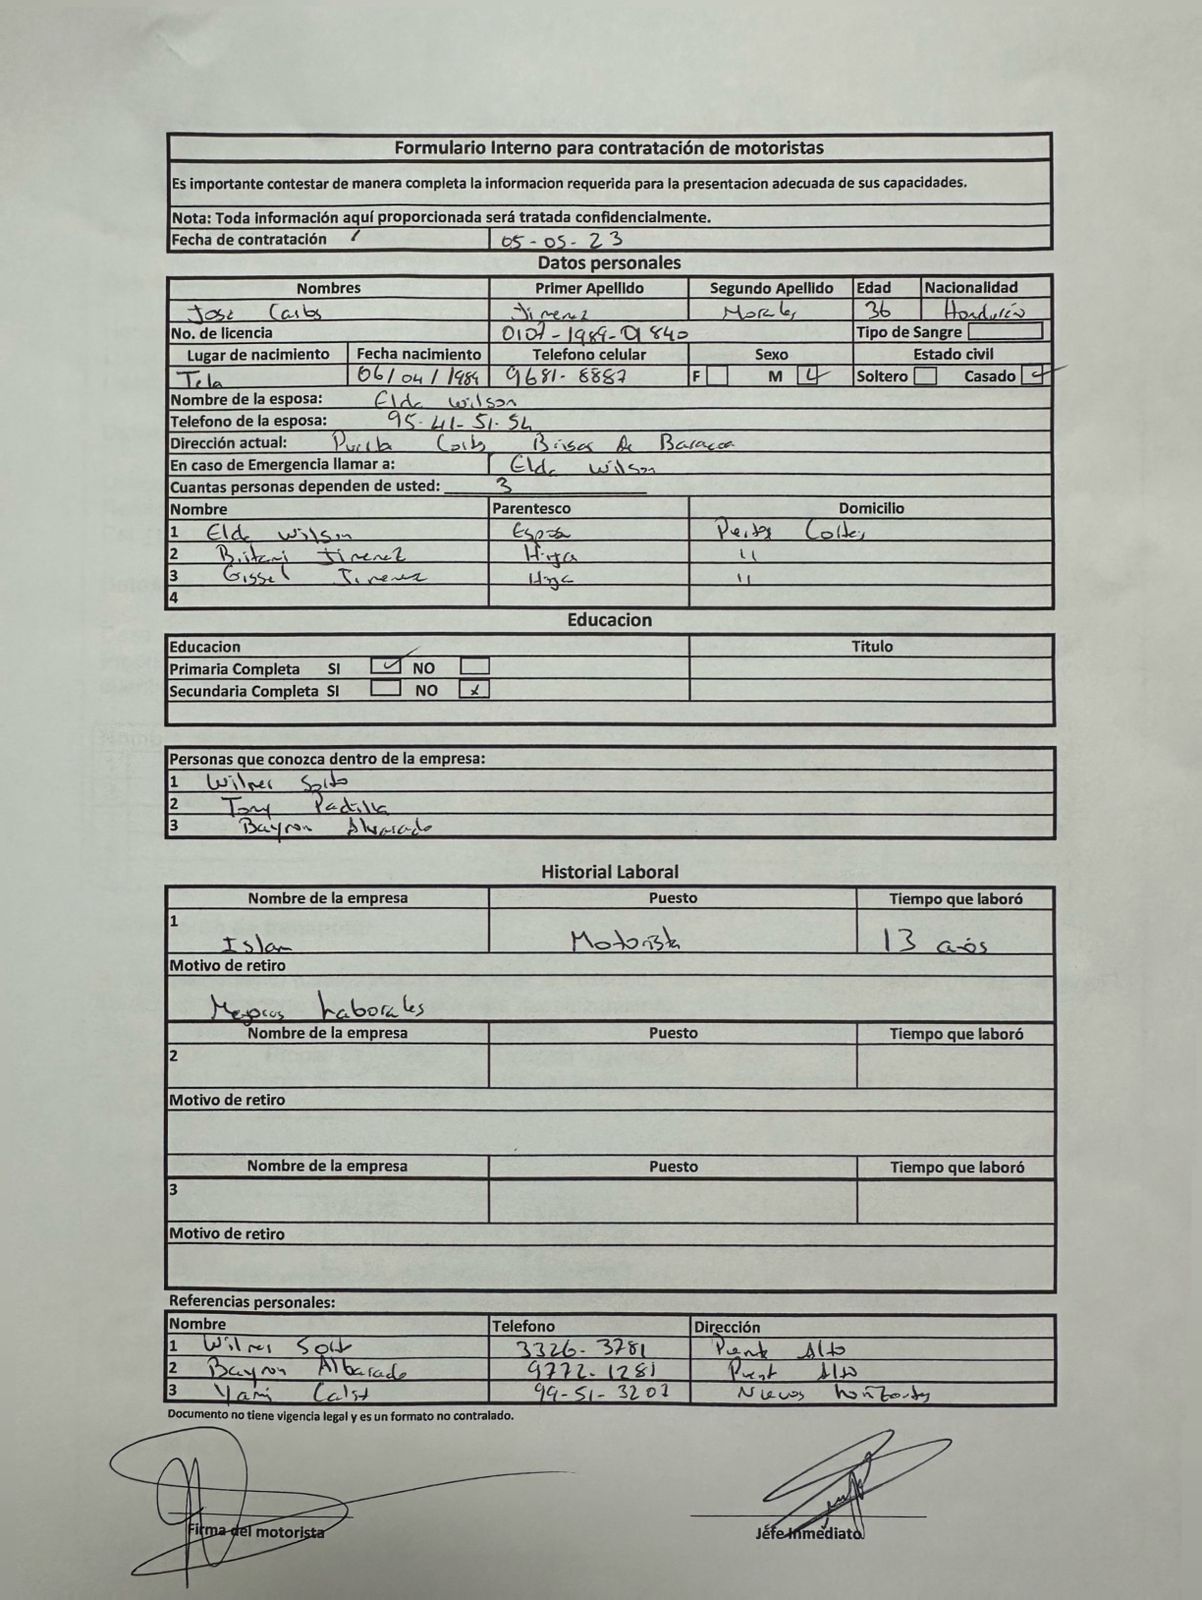 Formulario Interno para contratación de motoristas
Es importante contestar de manera completa la informacion requerida para la presentacion adecuada de sus capacidades.
Nota: Toda información aquí proporcionada será tratada confidencialmente.
Fecha de contratación 05-05-23
Datos personales
Nombres Primer Apellido Segundo Apellido Edad Nacionalidad
Jose Carlos Jimenez Morales 36
No. de licencia 0107-1989-01840 Tipo de Sangre
Lugar de nacimiento Fecha nacimiento Telefono celular Sexo Estado civil
Tela 06/04/1989 9681-8887 F M Soltero Casado
Nombre de la esposa: Elda Wilson
Telefono de la esposa: 95-41-51-54
Dirección actual: Puerto Cortes Brisas de Baracoa
En caso de Emergencia llamar a: Elda Wilson
Cuantas personas dependen de usted: 3
Nombre Parentesco Domicilio
1 Elda Wilson Esposa Cortes
2 Jimenez Hija "
3 Gissel Jimenez Hija "
4
Educacion
Educacion Titulo
Primaria Completa SI ✓ NO
Secundaria Completa SI NO x
Personas que conozca dentro de la empresa:
1 Wilmer Soto
2 Tony Padilla
3 Bayron Alvarado
Historial Laboral
Nombre de la empresa Puesto Tiempo que laboró
1
Motorista 13 años
Motivo de retiro
Mejoras Laborales
Nombre de la empresa Puesto Tiempo que laboró
2
Motivo de retiro
Nombre de la empresa Puesto Tiempo que laboró
3
Motivo de retiro
Referencias personales:
Nombre Telefono Dirección
1 Wilmer Soto 3326-3781 Alto
2 Bayron Albarado 9772-1281 Alto
3 99-51-3207 Nuevos horizontes
Documento no tiene vigencia legal y es un formato no contralado.
Firma del motorista Jefe Inmediato